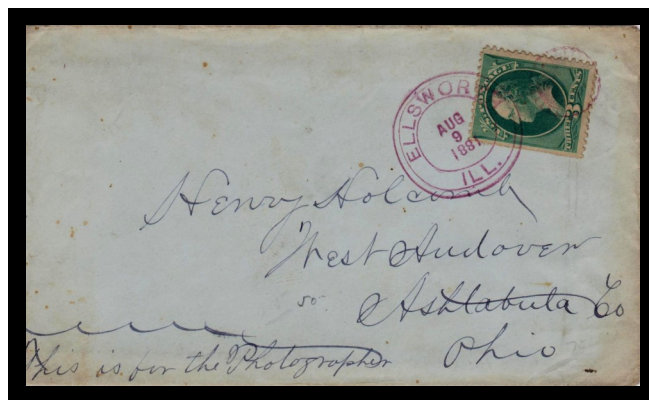 ELLSWOR
AUG
9
1881
ILL.
THREE 3 CENTS
Henry Holcomb
West Andover
Ashtabula Co
Ohio
This is for the Photographer